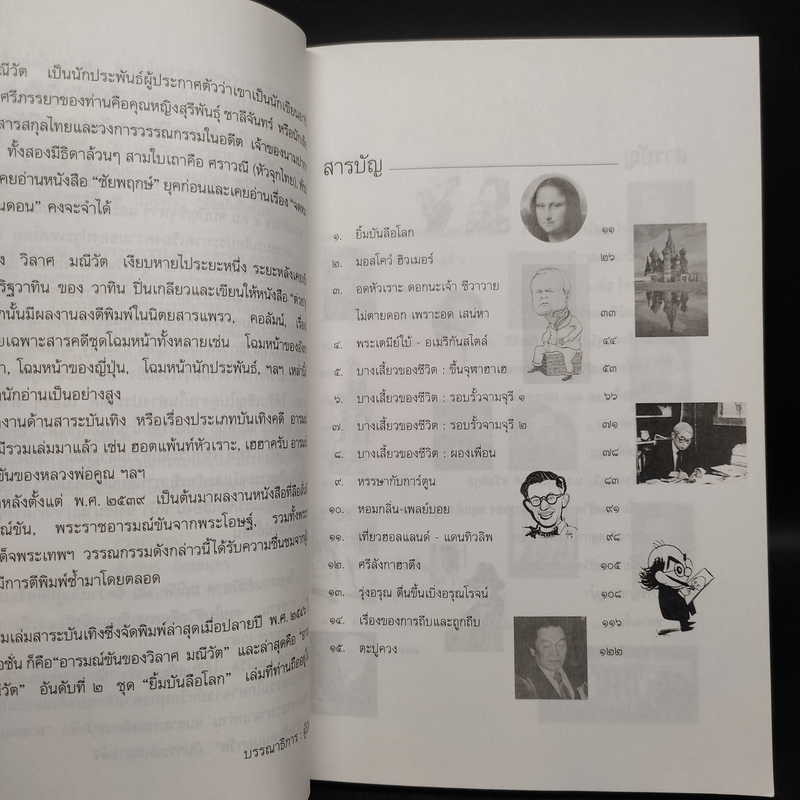 ณีวัต เป็นนักประพันธ์ผู้ประกาศตัวว่าเขาเป็นนักเขียน
ศรีภรรยาของท่านคือคุณหญิงสุรีพันธุ์ ชาลีจันทร์ หรือ
สารสกุลไทยและวงการวรรณกรรมในอดีต เจ้าของนาม
ทั้งสองมีธิดาล้วนๆ สามใบเถาคือ ศราวณี (หัวจุกไทย),
เคยอ่านหนังสือ “ชัยพฤกษ์” ยุคก่อนและเคยอ่านเรื่อง
นดอน” คงจะจำได้
ง วิลาศ มณีวัต เงียบหายไประยะหนึ่ง ระยะหลัง
ริฐวาทิน ของ วาทิน ปิ่นเกลียวและเขียนให้หนังสือ
กนั้นมีผลงานลงตีพิมพ์ในนิตยสารแพรว, คอลัมน์, เรื่อง
ยเฉพาะสารคดีชุดโฉมหน้าทั้งหลายเช่น โฉมหน้าของ
า, โฉมหน้าของญี่ปุ่น, โฉมหน้านักประพันธ์, ฯลฯ เหล่านี้
นักอ่านเป็นอย่างสูง
งานด้านสาระบันเทิง หรือเรื่องประเภทบันเทิงคดี อารมณ์
มีรวมเล่มมาแล้ว เช่น ฮอตแพ้นท์หัวเราะ, เฮฮาครับ อารมณ์
ขันของหลวงพ่อคูณ ฯลฯ
หลังตั้งแต่ พ.ศ. ๒๕๓๙ เป็นต้นมาผลงานหนังสือที่ลือลั่น
ณ์ขัน, พระราชอารมณ์ขันจากพระโอษฐ์, รวมทั้งพระ
ด็จพระเทพฯ วรรณกรรมดังกล่าวนี้ได้รับความชื่นชมจาก
มีการตีพิมพ์ซ้ำมาโดยตลอด
มเล่มสาระบันเทิงซึ่งจัดพิมพ์ล่าสุดเมื่อปลายปี พ.ศ. ๒๕๔๖
อชั่น ก็คือ“อารมณ์ขันของวิลาศ มณีวัต” และล่าสุดคือ
ณีวัต” อันดับที่ ๒ ชุด “ยิ้มบันลือโลก” เล่มที่ท่านถืออยู่
บรรณาธิการ :
สารบัญ
๑. ยิ้มบันลือโลก ๑๑
๒. มอสโคว์ ฮิวเมอร์ ๒๖
๓. อดหัวเราะ ดอกนะเจ้า ชีวาวาย
ไม่ตายดอก เพราะอด เสน่หา ๓๓
๔. พระเตมีย์ใบ้ - อเมริกันสไตล์ ๔๕
๕. บางเสี้ยวของชีวิต : ขึ้นจุฬาฮาเฮ ๕๓
๖. บางเสี้ยวของชีวิต : รอบรั้วจามจุรี ๑ ๖๖
๗. บางเสี้ยวของชีวิต : รอบรั้วจามจุรี ๒ ๗๑
๘. บางเสี้ยวของชีวิต : ผองเพื่อน ๗๘
๙. หรรษากับการ์ตูน ๘๓
๑๐. หอมกลิ่น-เพลย์บอย ๙๑
๑๑. เที่ยวฮอลแลนด์ - แดนทิวลิพ ๙๘
๑๒. ศรีลังกาฮาตึง ๑๐๕
๑๓. รุ่งอรุณ ตื่นขึ้นเบิ่งอรุณโรจน์ ๑๐๘
๑๔. เรื่องของการถีบและถูกถีบ ๑๑๖
๑๕. ตะปูควง ๑๒๒